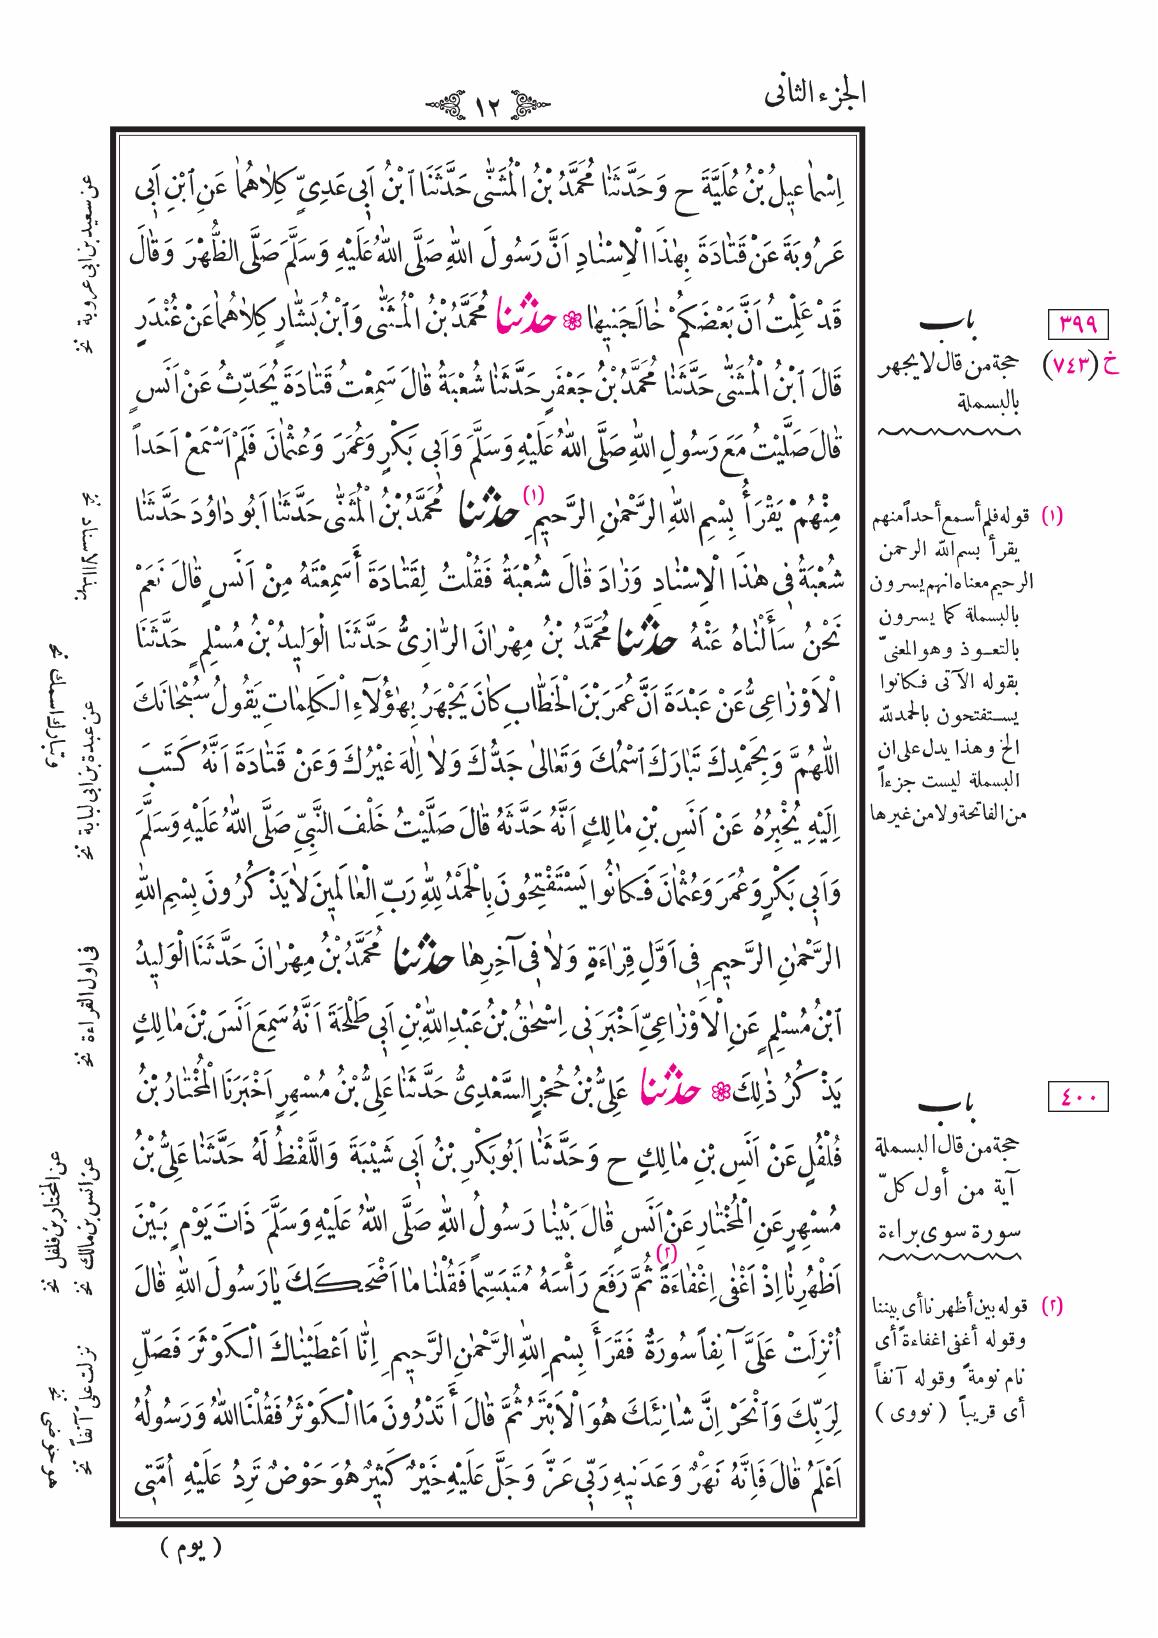 الجزء الثانى
١٢
اِسْمَاعِيلُ بْنُ عُلَيَّةَ ح وَحَدَّثَنَا مُحَمَّدُ بْنُ الْمُثَنَّى حَدَّثَنَا ابْنُ اَبِى عَدِىٍّ كِلَاهُمَا عَنِ ابْنِ اَبِى
عَرُوبَةَ عَنْ قَتَادَةَ بِهٰذَا الْاِسْنَادِ اَنَّ رَسُولَ اللهِ صَلَّى اللهُ عَلَيْهِ وَسَلَّمَ صَلَّى الظُّهْرَ وَقَالَ
قَدْ عَلِمْتُ اَنَّ بَعْضَكُمْ خَالَجَنِيهَا ❁ حدثنا مُحَمَّدُ بْنُ الْمُثَنَّى وَابْنُ بَشَّارٍ كِلَاهُمَا عَنْ غُنْدَرٍ
قَالَ ابْنُ الْمُثَنَّى حَدَّثَنَا مُحَمَّدُ بْنُ جَعْفَرٍ حَدَّثَنَا شُعْبَةُ قَالَ سَمِعْتُ قَتَادَةَ يُحَدِّثُ عَنْ اَنَسٍ
قَالَ صَلَّيْتُ مَعَ رَسُولِ اللهِ صَلَّى اللهُ عَلَيْهِ وَسَلَّمَ وَاَبِى بَكْرٍ وَعُمَرَ وَعُثْمَانَ فَلَمْ اَسْمَعْ اَحَداً
مِنْهُمْ يَقْرَأُ بِسْمِ اللهِ الرَّحْمٰنِ الرَّحِيمِ (١) حدثنا مُحَمَّدُ بْنُ الْمُثَنَّى حَدَّثَنَا اَبُو دَاوُدَ حَدَّثَنَا
شُعْبَةُ فِى هٰذَا الْاِسْنَادِ وَزَادَ قَالَ شُعْبَةُ فَقُلْتُ لِقَتَادَةَ أَسَمِعْتَهُ مِنْ اَنَسٍ قَالَ نَعَمْ
نَحْنُ سَأَلْنَاهُ عَنْهُ حدثنا مُحَمَّدُ بْنُ مِهْرَانَ الرَّازِىُّ حَدَّثَنَا الْوَلِيدُ بْنُ مُسْلِمٍ حَدَّثَنَا
الْاَوْزَاعِىُّ عَنْ عَبْدَةَ اَنَّ عُمَرَ بْنَ الْخَطَّابِ كَانَ يَجْهَرُ بِهٰؤُلَاءِ الْكَلِمَاتِ يَقُولُ سُبْحَانَكَ
اللّٰهُمَّ وَبِحَمْدِكَ تَبَارَكَ اسْمُكَ وَتَعَالَى جَدُّكَ وَلَا اِلٰهَ غَيْرُكَ وَعَنْ قَتَادَةَ اَنَّهُ كَتَبَ
اِلَيْهِ يُخْبِرُهُ عَنْ اَنَسِ بْنِ مَالِكٍ اَنَّهُ حَدَّثَهُ قَالَ صَلَّيْتُ خَلْفَ النَّبِىِّ صَلَّى اللهُ عَلَيْهِ وَسَلَّمَ
وَاَبِى بَكْرٍ وَعُمَرَ وَعُثْمَانَ فَكَانُوا يَسْتَفْتِحُونَ بِالْحَمْدُ لِلّٰهِ رَبِّ الْعَالَمِينَ لَا يَذْكُرُونَ بِسْمِ اللهِ
الرَّحْمٰنِ الرَّحِيمِ فِى اَوَّلِ قِرَاءَةٍ وَلَا فِى آخِرِهَا حدثنا مُحَمَّدُ بْنُ مِهْرَانَ حَدَّثَنَا الْوَلِيدُ
ابْنُ مُسْلِمٍ عَنِ الْاَوْزَاعِىِّ اَخْبَرَنِى اِسْحٰقُ بْنُ عَبْدِ اللهِ بْنِ اَبِى طَلْحَةَ اَنَّهُ سَمِعَ اَنَسَ بْنَ مَالِكٍ
يَذْكُرُ ذٰلِكَ ❁ حدثنا عَلِىُّ بْنُ حُجْرٍ السَّعْدِىُّ حَدَّثَنَا عَلِىُّ بْنُ مُسْهِرٍ اَخْبَرَنَا الْمُخْتَارُ بْنُ
فُلْفُلٍ عَنْ اَنَسِ بْنِ مَالِكٍ ح وَحَدَّثَنَا اَبُو بَكْرِ بْنُ اَبِى شَيْبَةَ وَاللَّفْظُ لَهُ حَدَّثَنَا عَلِىُّ بْنُ
مُسْهِرٍ عَنِ الْمُخْتَارِ عَنْ اَنَسٍ قَالَ بَيْنَا رَسُولُ اللهِ صَلَّى اللهُ عَلَيْهِ وَسَلَّمَ ذَاتَ يَوْمٍ بَيْنَ
اَظْهُرِنَا اِذْ اَغْفَى اِغْفَاءَةً (٢) ثُمَّ رَفَعَ رَأْسَهُ مُتَبَسِّماً فَقُلْنَا مَا اَضْحَكَكَ يَا رَسُولَ اللهِ قَالَ
اُنْزِلَتْ عَلَىَّ آنِفاً سُورَةٌ فَقَرَأَ بِسْمِ اللهِ الرَّحْمٰنِ الرَّحِيمِ اِنَّا اَعْطَيْنَاكَ الْكَوْثَرَ فَصَلِّ
لِرَبِّكَ وَانْحَرْ اِنَّ شَانِئَكَ هُوَ الْاَبْتَرُ ثُمَّ قَالَ أَتَدْرُونَ مَا الْكَوْثَرُ فَقُلْنَا اللهُ وَرَسُولُهُ
اَعْلَمُ قَالَ فَاِنَّهُ نَهَرٌ وَعَدَنِيهِ رَبِّى عَزَّ وَجَلَّ عَلَيْهِ خَيْرٌ كَثِيرٌ هُوَ حَوْضٌ تَرِدُ عَلَيْهِ اُمَّتِى
( يوم )
٣٩٩
خ (٧٤٣)
باب
حجة من قال لا يجهر
بالبسملة
(١) قوله فلم أسمع أحداً منهم
يقرأ بسم الله الرحمن
الرحيم معناه انهم يسرون
بالبسملة كما يسرون
بالتعوذ وهو المعنىّ
بقوله الآتى فكانوا
يستفتحون بالحمدلله
الخ وهذا يدل على ان
البسملة ليست جزءاً
من الفاتحة ولا من غيرها
٤٠٠
باب
حجة من قال البسملة
آية من أول كلّ
سورة سوى براءة
(٢) قوله بين أظهرنا أى بيننا
وقوله أغفى اغفاءةً أى
نام نومةً وقوله آنفاً
أى قريباً ( نووى )
عن سعيد بن ابى عروبة نخ
بهذا الاسناد نخ
وتبارك اسمك نخ
عن عبدة بن ابى لبابة نخ
فى اول القراءة نخ
عن المختار بن فلفل نخ
عن انس بن مالك نخ
نزلت علىّ آنفاً نخ
هو حوضى نخ